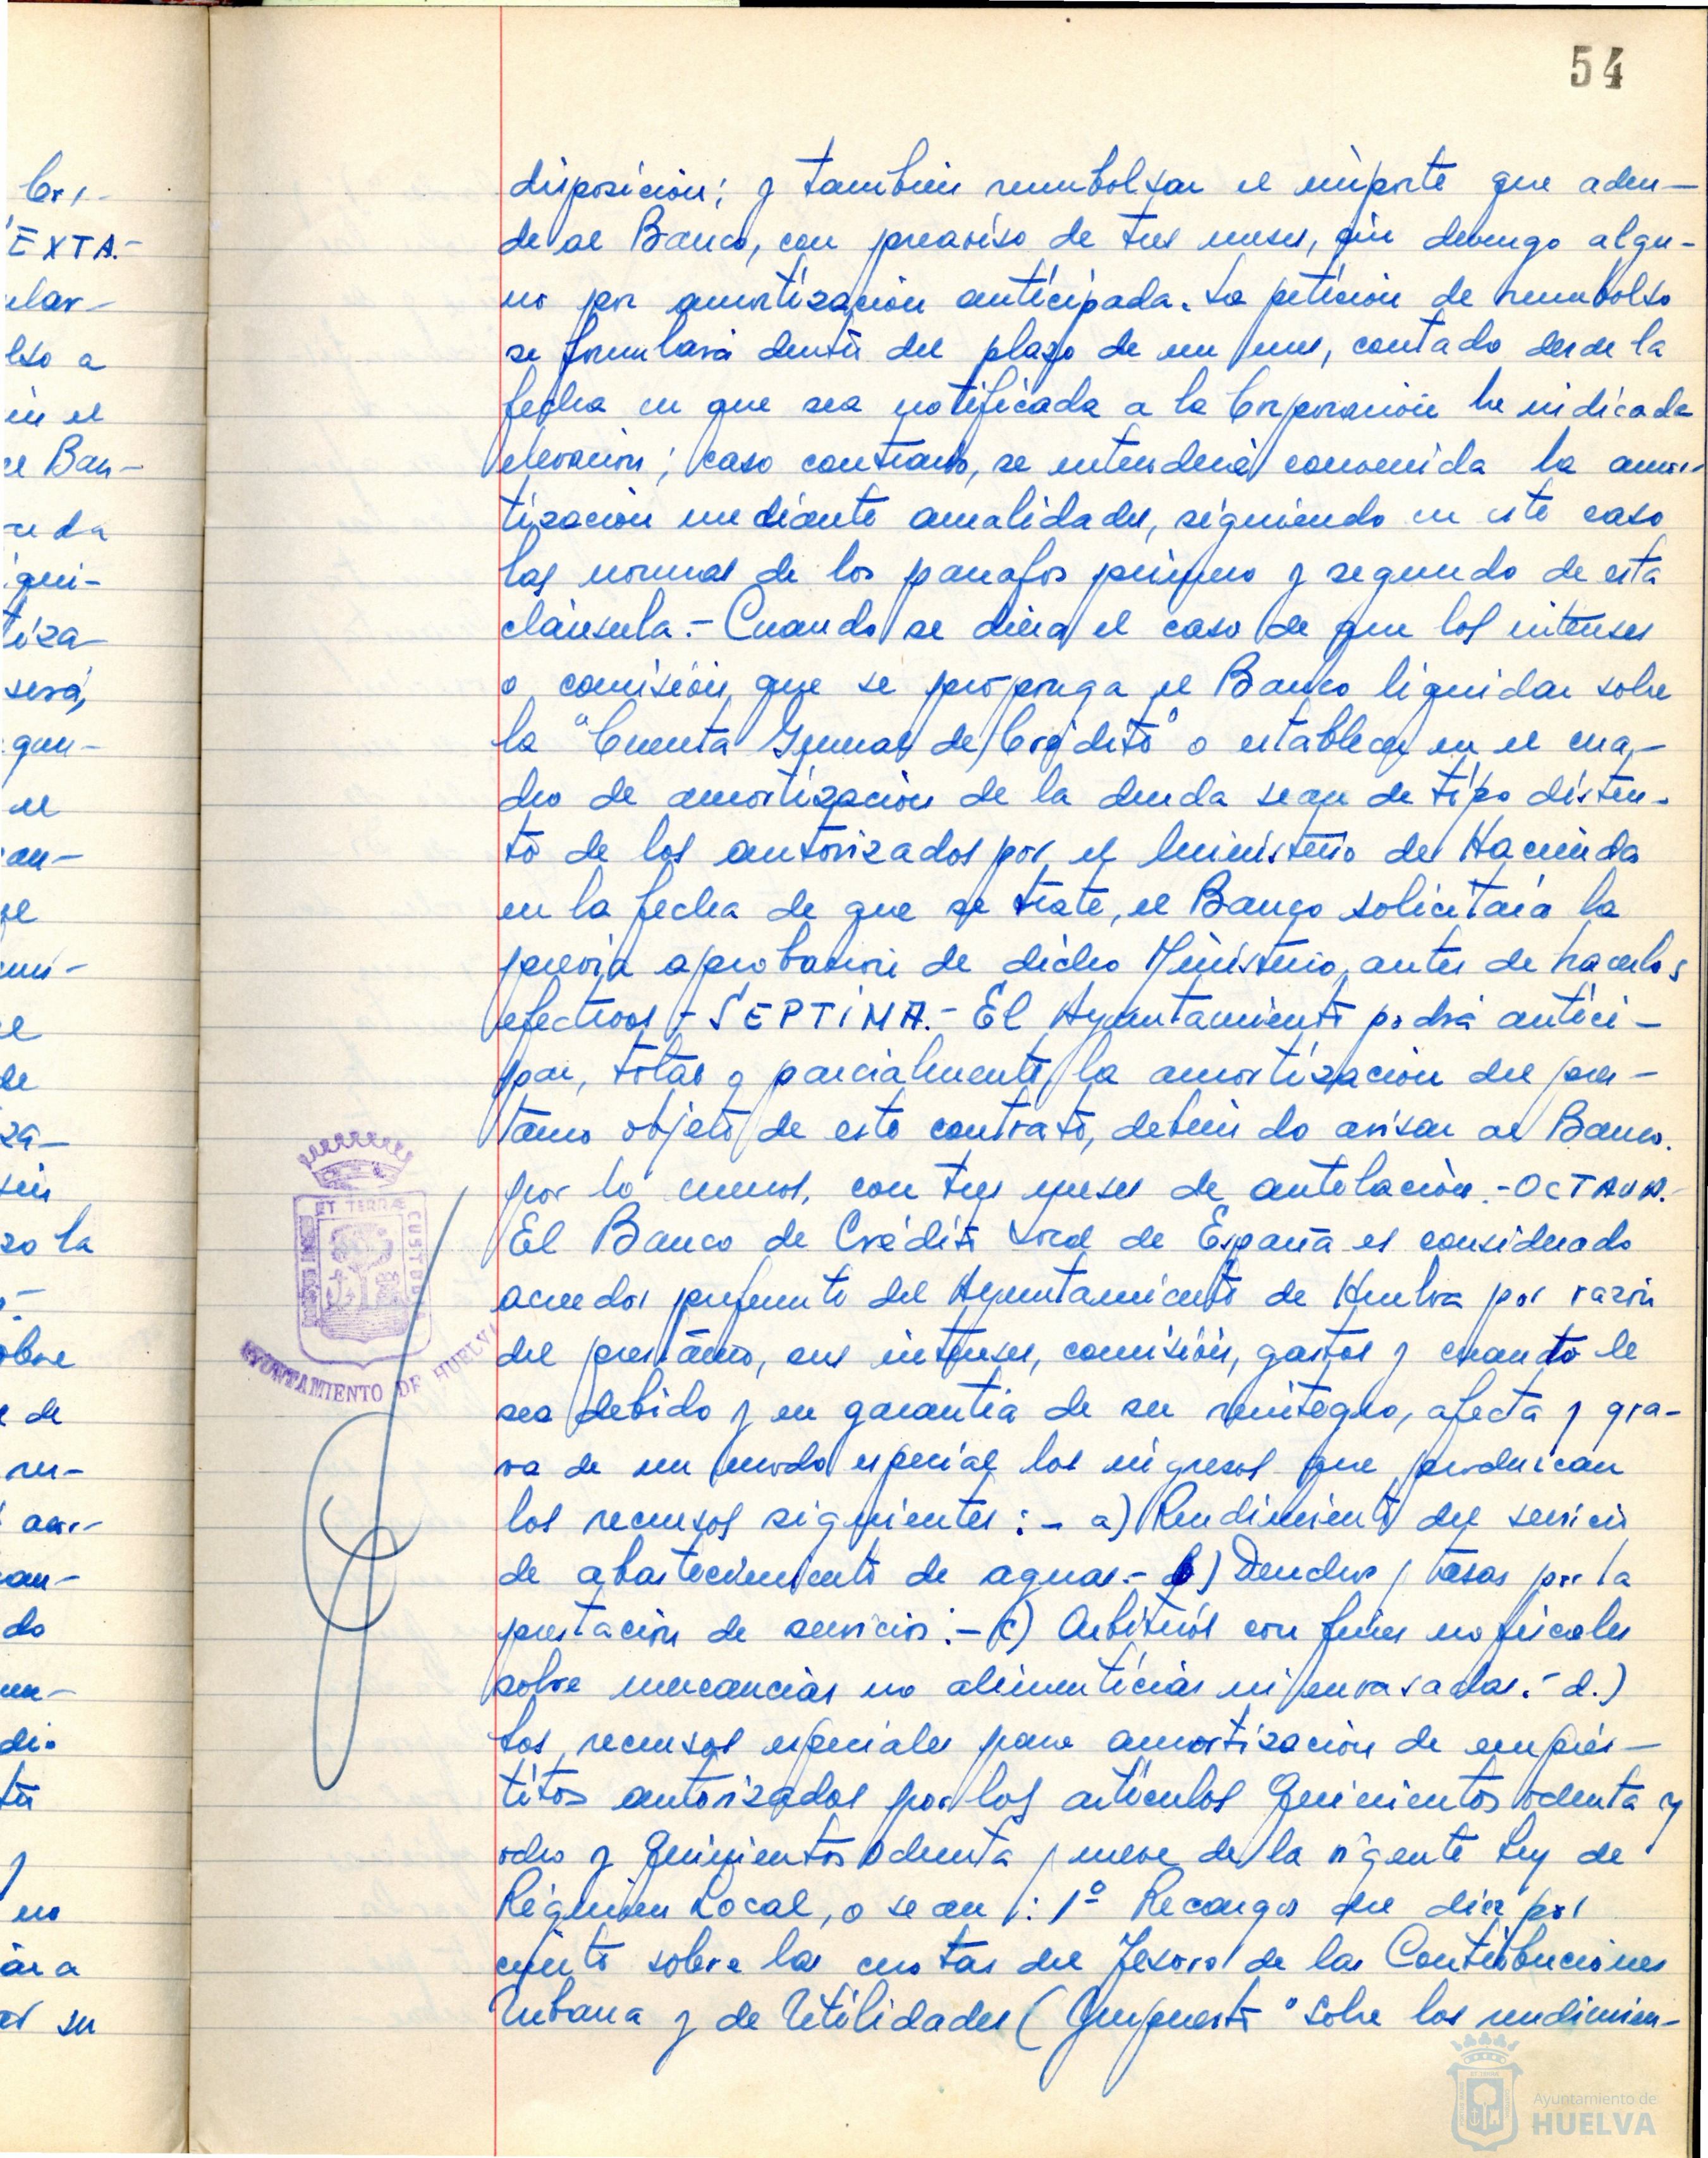 54
disposición; y también reembolsar el importe que adeu-
de al Banco, con preaviso de tres meses, sin devengo algu-
no por amortización anticipada. La petición de reembolso
se formulará dentro del plazo de un mes, contado desde la
fecha en que sea notificada a la Corporación la indicada
elevación; caso contrario, se entenderá convenida la amor-
tización mediante anualidades, siguiendo en este caso
las normas de los parrafos primero y segundo de esta
cláusula.- Cuando se diera el caso de que los intereses
o comisión que se proponga el Banco liquidar sobre
la "Cuenta General de Crédito" o establecer en el cua-
dro de amortización de la deuda sean de tipo distin-
to de los autorizados por el Ministerio de Hacienda
en la fecha de que se trate, el Banco solicitará la
previa aprobación de dicho Ministerio, antes de hacerlos
efectivos.- SEPTIMA.- El Ayuntamiento podrá antici-
par, total o parcialmente, la amortización del prés-
tamo objeto de esto contrato, debiendo avisar al Banco.
por lo menos, con tres meses de antelación.- OCTAVA.-
El Banco de Crédito Local de España es considerado
acreedor preferente del Ayuntamiento de Huelva por razón
del préstamo, sus intereses, comisión, gastos y cuanto le
sea debido y en garantía de su reintegro, afecta y gra-
va de un modo especial los ingresos que produzcan
los recursos siguientes:- a) Rendimiento del servicio
de abastecimiento de aguas.- b) Derechos y tasas por la
prestación de servicios:- c) Arbitrios con fines no fiscales
sobre mercancías no alimenticias ni envasadas.- d.)
Los recursos especiales para amortización de emprés-
titos autorizados por los artículos Quinientos ochenta y
ocho y Quinientos ochenta y nueve de la vigente Ley de
Régimen Local, o sean: 1º Recargo del diez por
ciento sobre las cuotas del Tesoro de las Contribuciones
Urbana y de Utilidades (Impuesto "sobre los rendimien-
ET TERRÆ CUSTODIA
AYUNTAMIENTO DE HUELVA
Ayuntamiento de
HUELVA
EXTA.-
ular-
lso a
in el
el Ban-
qui-
tiza-
será,
el
an-
de
za-
zo la
obre
e de
do
no
su